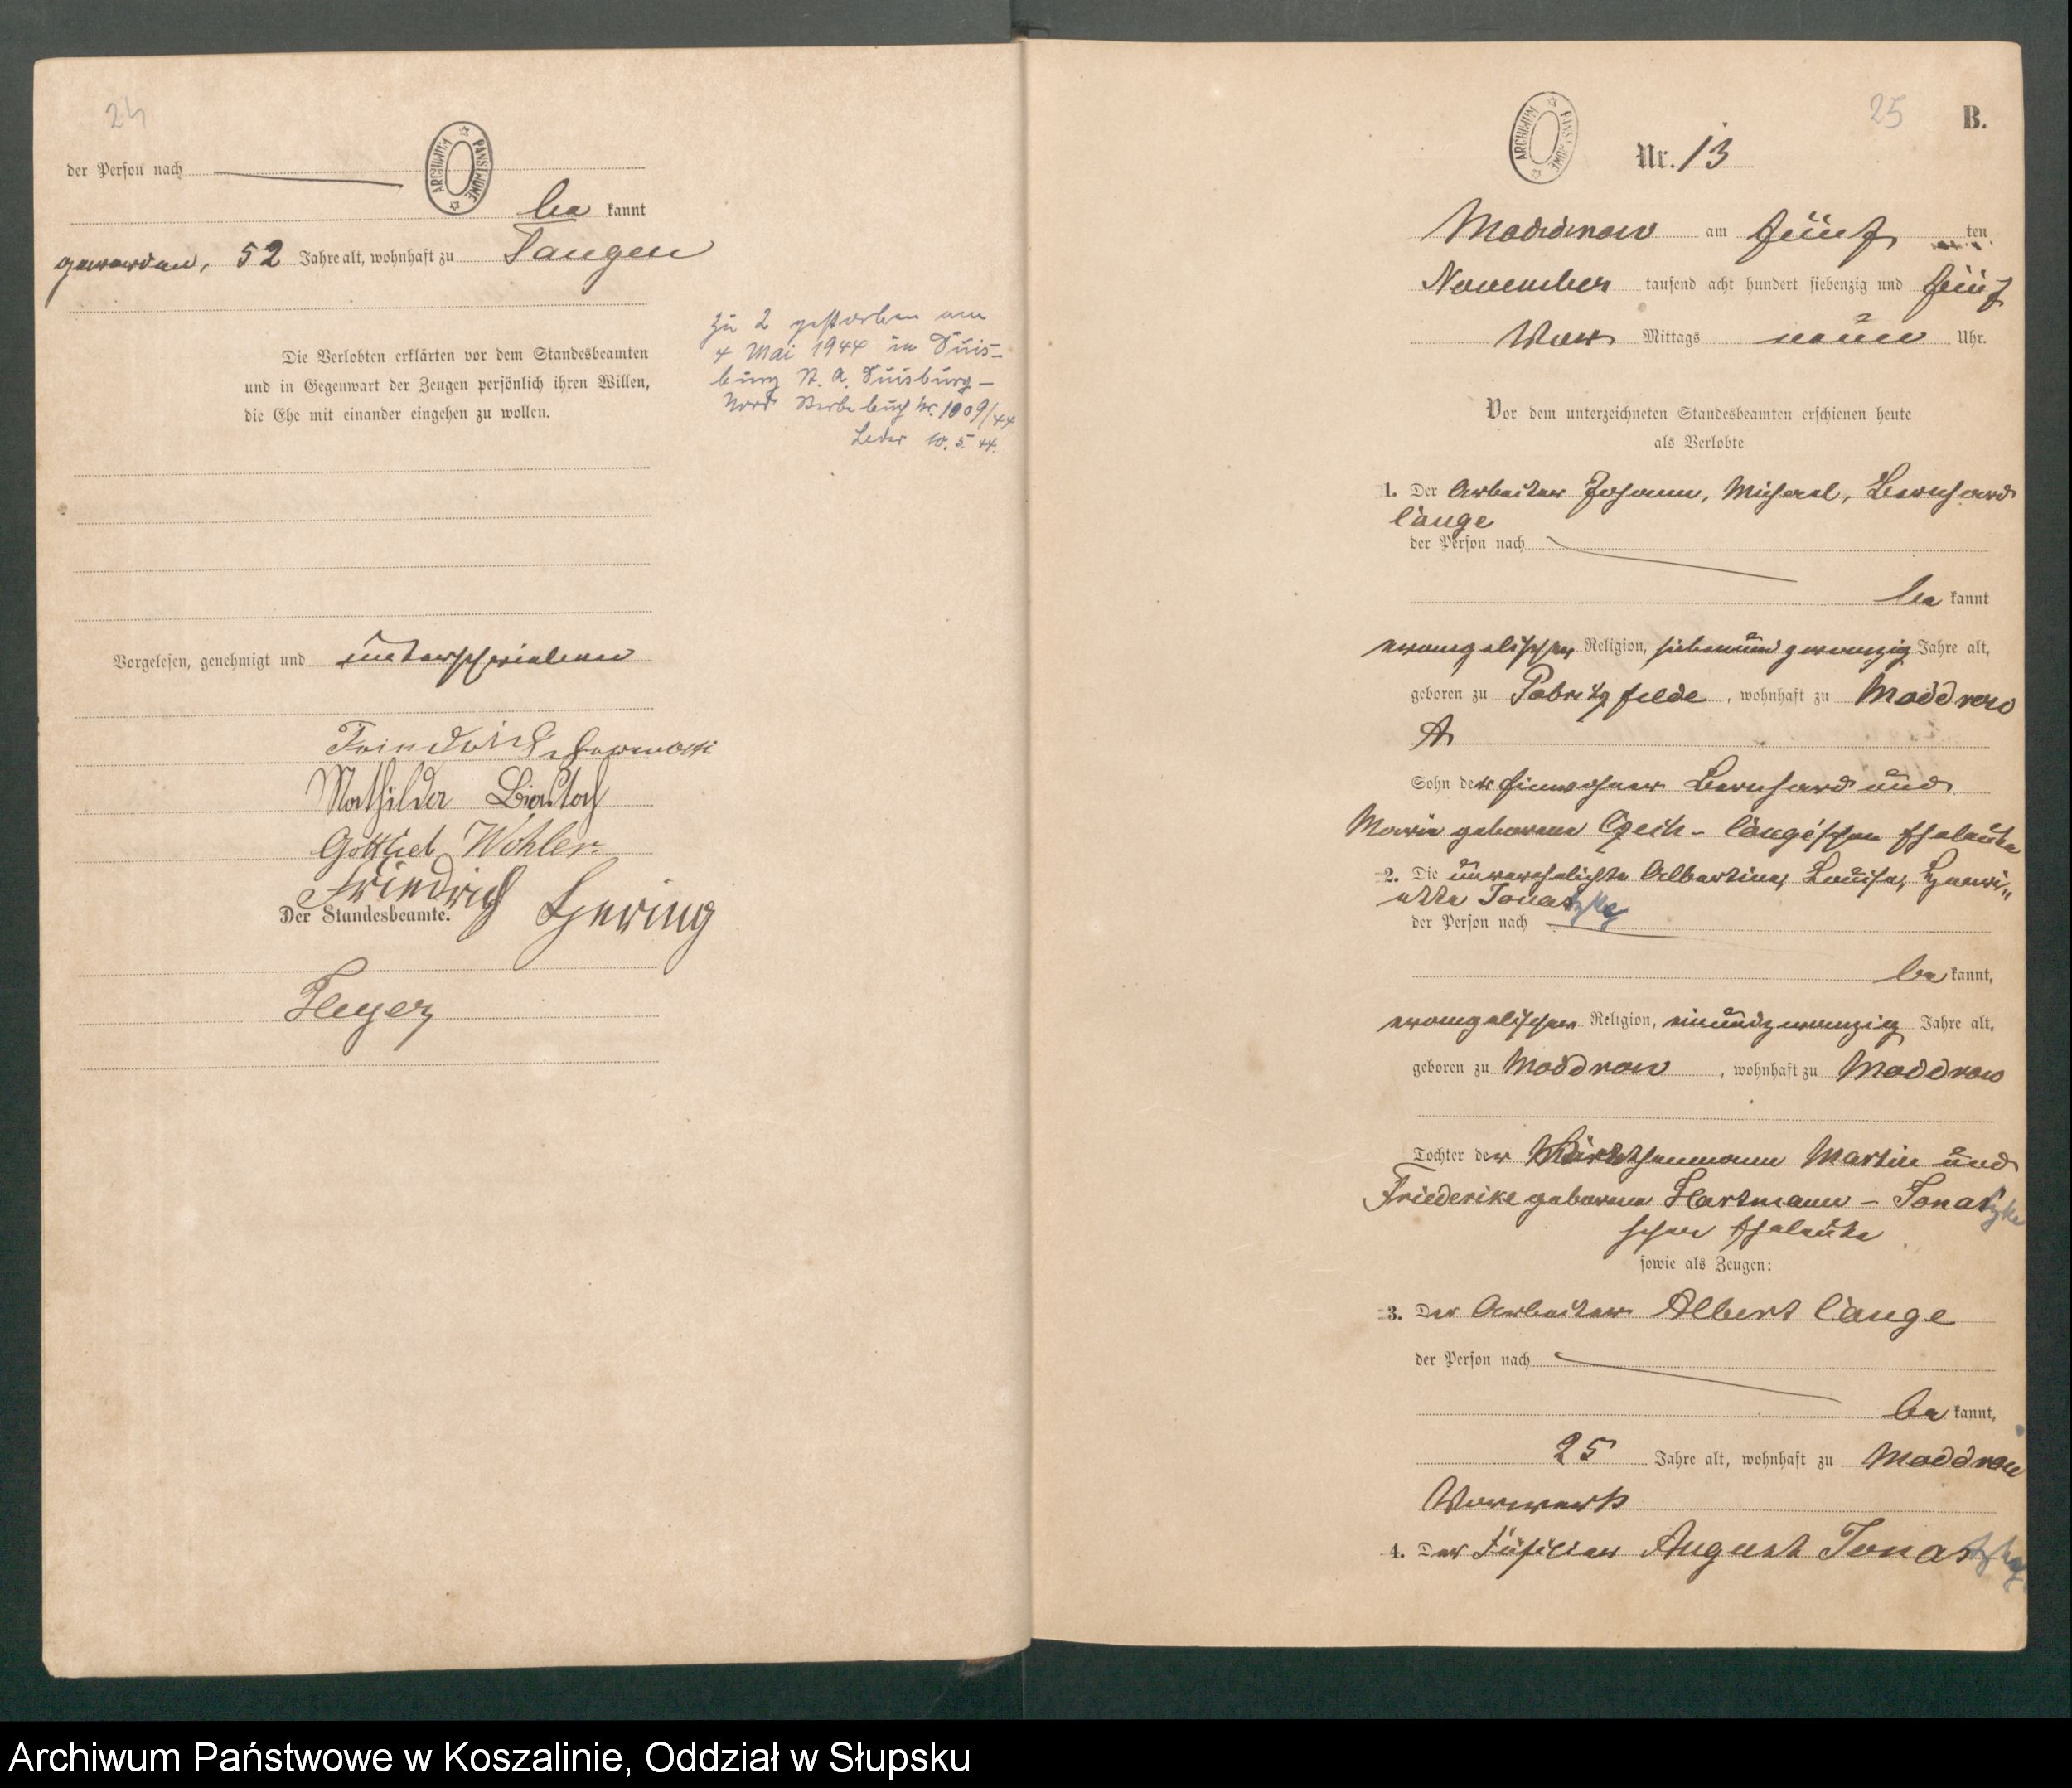 24
der Person nach
ARCHIWUM PAŃSTWOWE
be kannt
geworden, 52 Jahre alt, wohnhaft zu Tangen
Die Verlobten erklärten vor dem Standesbeamten
und in Gegenwart der Zeugen persönlich ihren Willen,
die Ehe mit einander eingehen zu wollen.
Zu 2 gestorben am
4 Mai 1944 in Duis-
burg St. A. Duisburg-
Nord Sterbebuch Nr. 1009/44
10. 5. 44.
Vorgelesen, genehmigt und unterschrieben
Mathilde
Gottlieb Wöhler
Friedrich Hering
Der Standesbeamte.
Heyer
25
B.
ARCHIWUM PAŃSTWOWE
Nr. 13
Moddrow am fünf ten
November tausend acht hundert siebenzig und fünf
Vor Mittags neun Uhr.
Vor dem unterzeichneten Standesbeamten erschienen heute
als Verlobte
1. Der Arbeiter Johann, Michael, Bernhard
Lange
der Person nach
be kannt
evangelischer Religion, siebenundzwanzig Jahre alt,
geboren zu Pobritzfelde, wohnhaft zu Moddrow
A
Sohn der Einwohner Bernhard und
Marie geborene Czech- Lange'schen Eheleute
2. Die unverehelichte Albertine, Louise, Henri-
ette Jonatzke
der Person nach
be kannt,
evangelischer Religion, einundzwanzig Jahre alt,
geboren zu Moddrow, wohnhaft zu Moddrow
Tochter der Martin und
Friederike geborene Hartmann - Jonatzke
schen Eheleute
sowie als Zeugen:
3. Der Arbeiter Albert Lange
der Person nach
be kannt,
25 Jahre alt, wohnhaft zu Moddrow
Vorwerk
4. Der Füsilier August Jonatzke
Archiwum Państwowe w Koszalinie, Oddział w Słupsku